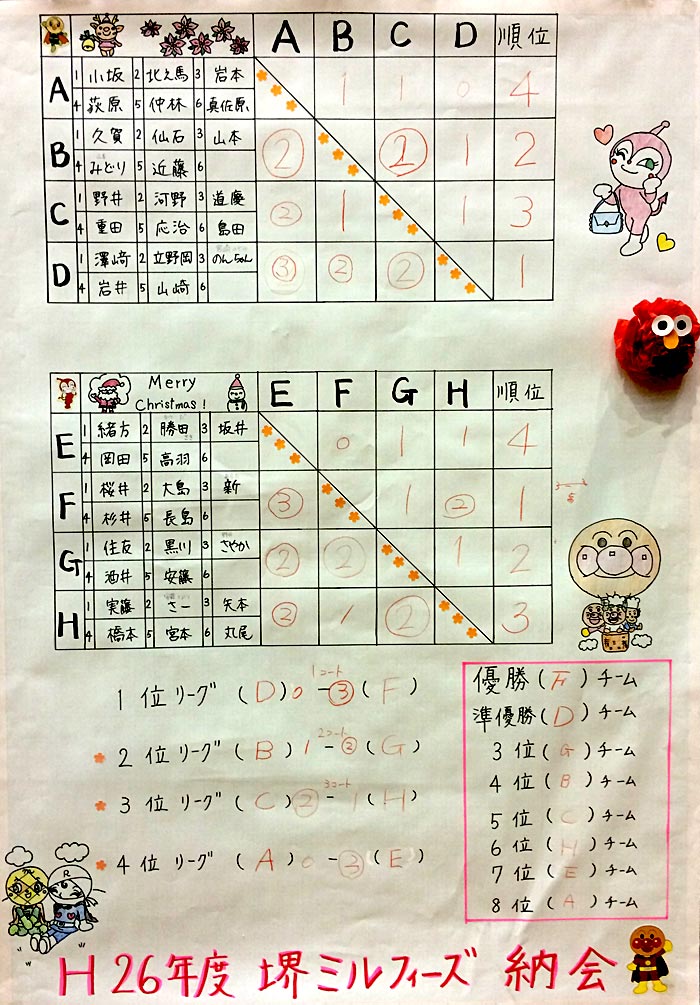 A B C D 順位
A 1 小坂 2 北之馬 3 岩本 1 1 0 4
4 荻原 5 仲林 6 真佐原
B 1 久賀 2 仙石 3 山本 ② ② 1 2
4 みどり 5 近藤 6
C 1 野井 2 河野 3 道慶 ② 1 1 3
4 重田 5 応治 6 島田
D 1 澤﨑 2 立野岡 3 のんちゃん ③ ② ② 1
4 岩井 5 山﨑 6
Merry Christmas! E F G H 順位
E 1 緒方 2 勝田 3 坂井 0 1 1 4
4 岡田 5 高羽 6
F 1 桜井 2 大島 3 新 ③ 1 ② 1
4 杉井 5 長島 6
G 1 住友 2 黒川 3 さやか ② ② 1 2
4 酒井 5 安藤 6
H 1 実藤 2 さー 3 矢本 ② 1 ② 3
4 橋本 5 宮本 6 丸尾
1コート
1位リーグ (D) 0 - ③ (F)
2コート
2位リーグ (B) 1 - ② (G)
3コート
3位リーグ (C) ② - 1 (H)
4位リーグ (A) 0 - ③ (E)
優勝 (F) チーム
準優勝 (D) チーム
3位 (G) チーム
4位 (B) チーム
5位 (C) チーム
6位 (H) チーム
7位 (E) チーム
8位 (A) チーム
H26年度 堺ミルフィーズ 納会